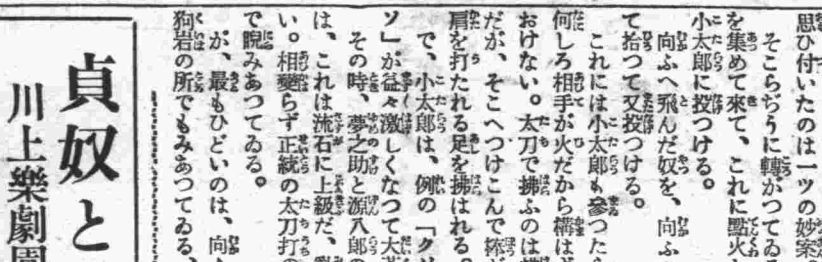 思ひ付いたのは一ツの妙案
そこらぢうに轉がつてゐ
を集めて來て、これに點火
小太郎に投つける。
向ふへ飛んだ奴を、向ふ
て拾つて又投つける。
これには小太郎も參つた
何しろ相手が火だから構は
おけない。太刀で拂ふのは
だが、そこへつけこんで棒
肩を打たれる足を拂はれる。
で、小太郎は、例の「ク
ソ」が益々激しくなつて大
その時、夢之助と源八郎の
は、これは流石に上級だ、
い。相變らず正統の太刀打の
で睨みあつてゐる。
が、最もひどいのは、向
狗岩の所でもみあつてゐる、
貞奴と
川上樂劇園